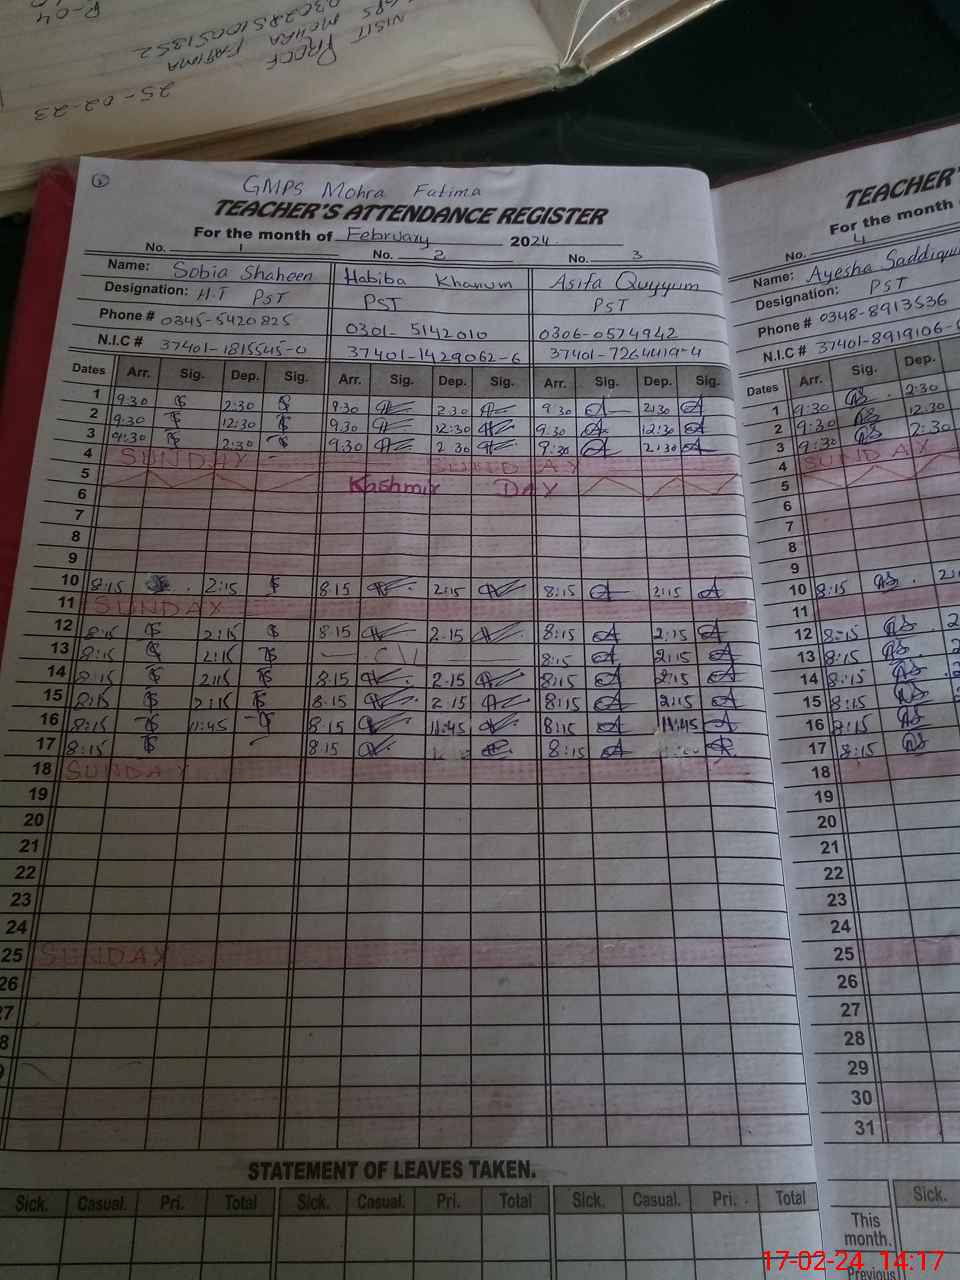 R-04
03028510051352
VISIT
MOHRA FATIMA
PROOF
25-02-23
GMPS Mohra Fatima
TEACHER'S ATTENDANCE REGISTER
For the month of February 2024
No. 1 No. 2 No. 3
Name: Sobia Shaheen Habiba Khanum Asifa Quyyum
Designation: H.T PST PST PST
Phone # 0345-5420825 0301-5142010 0306-0574942
N.I.C # 37401-1815545-0 37401-1429062-6 37401-7264419-4
Dates Arr. Sig. Dep. Sig. Arr. Sig. Dep. Sig. Arr. Sig. Dep. Sig.
1 9:30 2:30 9:30 2:30 9:30 2:30
2 9:30 12:30 9:30 12:30 9:30 12:30
3 9:30 2:30 9:30 2:30 9:30 2:30
4 SUNDAY SUNDAY
5 Kashmir DAY
6
7
8
9
10 8:15 2:15 8:15 2:15 8:15 2:15
11 SUNDAY
12 8:15 2:15 8:15 2:15 8:15 2:15
13 8:15 2:15 C/L 8:15 2:15
14 8:15 2:15 8:15 2:15 8:15 2:15
15 8:15 2:15 8:15 2:15 8:15 2:15
16 8:15 11:45 8:15 11:45 8:15 11:45
17 8:15 8:15 8:15
18 SUNDAY
19
20
21
22
23
24
25 SUNDAY
26
27
8
9
STATEMENT OF LEAVES TAKEN.
Sick. Casual. Pri. Total Sick. Casual. Pri. Total Sick. Casual. Pri. Total
TEACHER'
For the month
No. 4
Name: Ayesha
Designation: PST
Phone # 0348-8913536
N.I.C # 37401-8919106-
Dates Arr. Sig. Dep.
1 9:30 2:30
2 9:30 12:30
3 9:30 2:30
4 SUNDAY
5
6
7
8
9
10 8:15
11
12 8:15 2
13 8:15 2
14 8:15 2
15 8:15 2
16 8:15
17 8:15
18
19
20
21
22
23
24
25
26
27
28
29
30
31
Sick.
This
month.
Previous
17-02-24 14:17